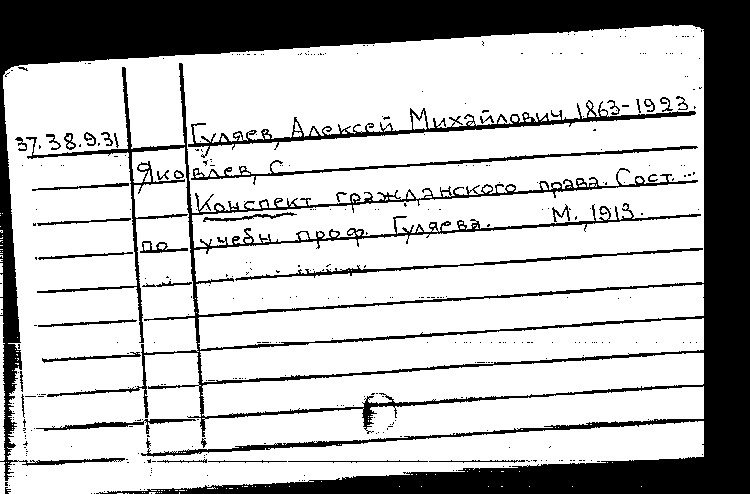 37.38.9.31 Гуляев, Алексей Михайлович, 1863-1923.
Яковлев, С.
Конспект гражданского права. Сост. ...
по учебн. проф. Гуляева. М., 1913.